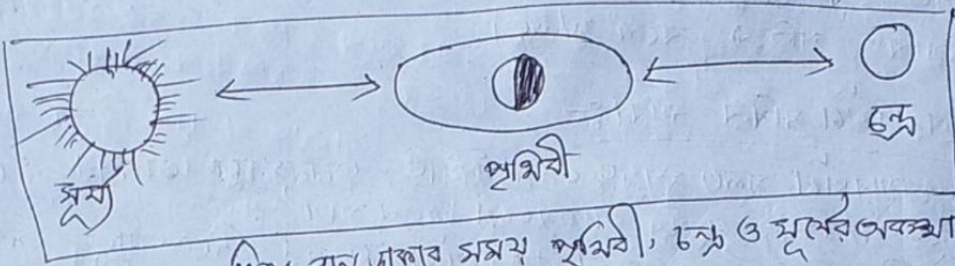 চন্দ্র
পৃথিবী
সূর্য
সময় পৃথিবী, চন্দ্র ও সূর্যের অবস্থা